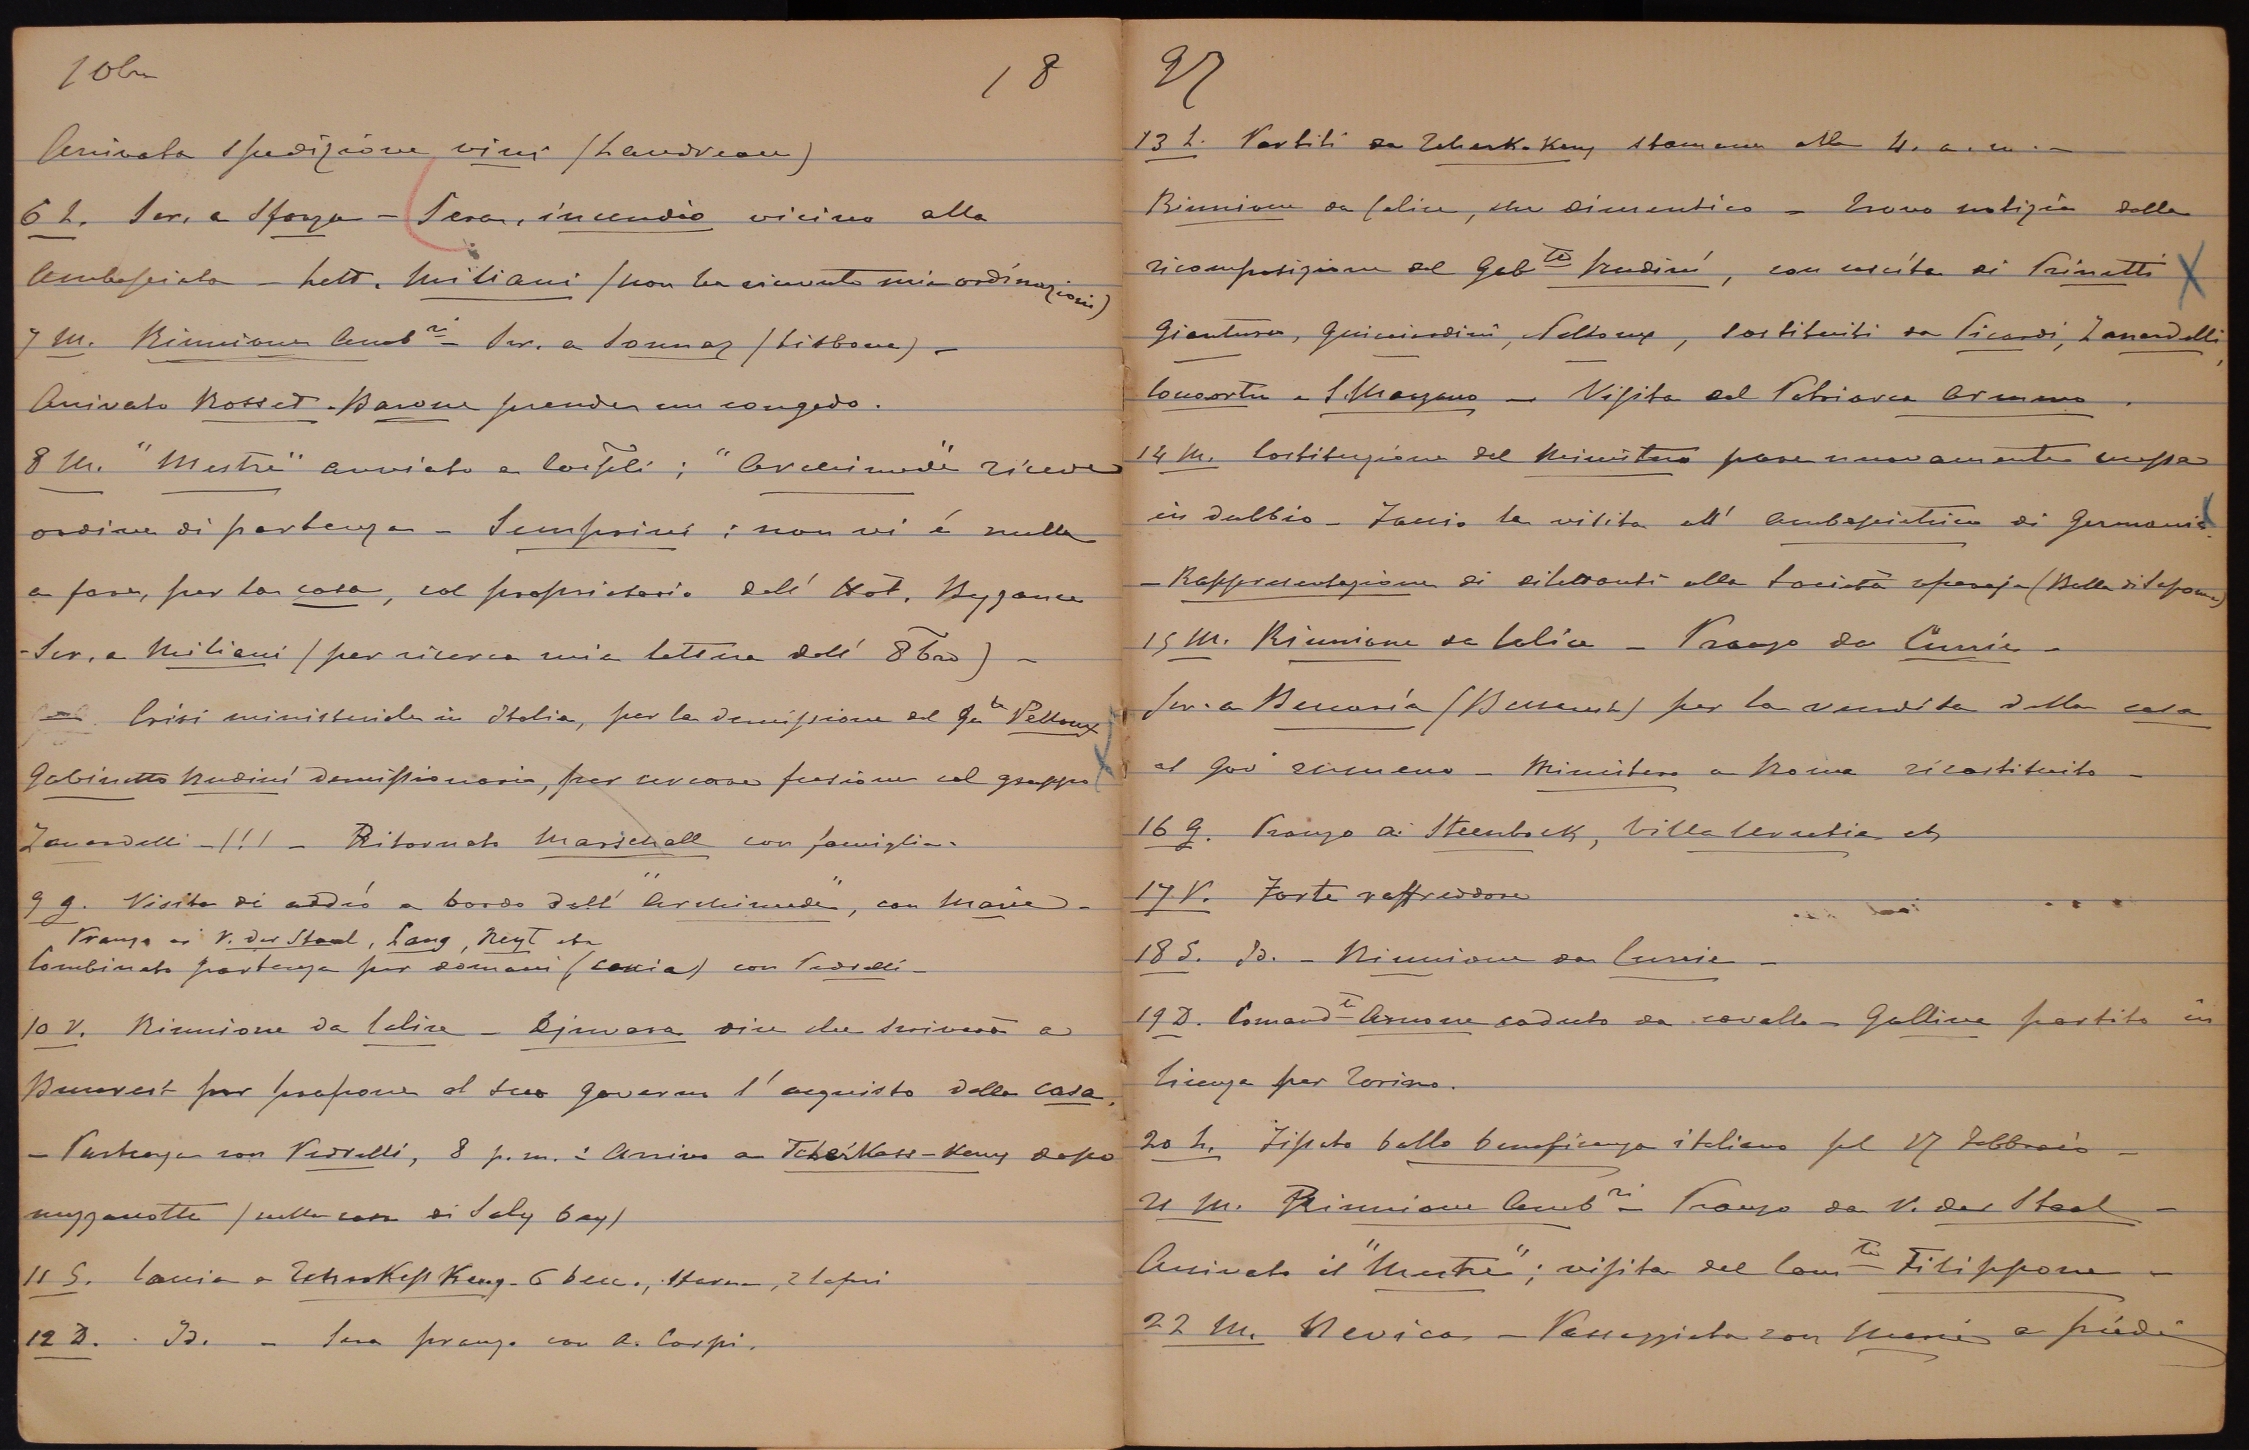 10bre 18
Arrivata spedizione vini (Landreau)
6 L. Scr. a Sforza - Sera, incendio vicino alla
Ambasciata - Lett. Miliani (non ha ricevuto mie ordinazioni)
7 M. Riunione Amb.ri - Scr. a Sonnaz (Lisbona) -
Arrivato Rosset - Barone prende un congedo.
8 M. "Mestre" avviato a ; "Archimede" riceve
ordine di partenza - Semprini : non vi è nulla
a fare, per la casa, col proprietario dell' Hôt. Byzance
- Scr. a Miliani (per ricerca mia lettera dell' 8bre) -
Crisi ministeriale in Italia, per la demissione del Ge.le Pelloux
Gabinetto Rudinì demissionario, per cercare fusione col gruppo
Zanardelli - !!! - Ritornato Marschall con famiglia.
9 G. Visita di addio a bordo dell' "Archimede", con Marie -
Pranzo ai V. der Staal, Lang, Neyt etc
Combinato partenza per domani (caccia) con Vedrelli -
10 V. Riunione da Calice - Djuvara dice che scriverà a
Bucarest per proporre al suo governo l'acquisto della casa.
- Partenza con Vedrelli, 8 p.m. : Arrivo a Tcherkess-Keuy dopo
mezzanotte (nella casa di Saly bey)
11 S. Caccia a Tcherkess Keuy - 6 becc., starna, 2 lepri
12 D. Id. - Sera pranzo con A. Corpi.
97
13 L. Partiti da Tcherk. Keuy stamane alle 4. a. m. -
Riunione da Calice, che dimentico - Trovo notizia della
ricomposizione del Gab.to Rudinì, con uscita di Prinetti
Gianturco, Guicciardini, Pelloux, sostituiti da Sicardi, Zanardelli,
Cocoortu e S. Marzano - Visita del Patriarca Armeno.
14 M. Costituzione del Ministero pare nuovamente messa
in dubbio - Faccio la visita all' Ambasciatrice di Germania.
- Rappresentazione di dilettanti alla Società operaja (Bolla di Sapone)
15 M. Riunione da Calice - Pranzo da Currie -
Scr. a Beccaria (Bucarest) per la vendita della casa
al Gov.o rumeno - Ministero a Roma ricostituito -
16 G. Pranzo ai Steenbock, Villa Urrutia etc
17 V. Forte raffreddore
18 S. Id. - Riunione da Currie -
19 D. Comand.te Arnone caduto da cavallo - Gallina partito in
licenza per Torino.
20 L. Fissato ballo beneficenza italiano pel 17 Febbraio -
21 M. Riunione Amb.ri - Pranzo da V. der Staal -
Arrivato il "Mestre"; visita del Com.te Filippone -
22 M. Nevica - Passeggiata con Marie a piedi